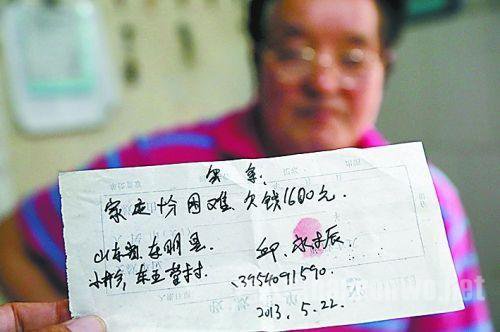 欠条.
家庭十分困难、欠钱1600元.
山东省,东明县. 邱
小井乡,东王营村. 13954091590.
2013.5.22.